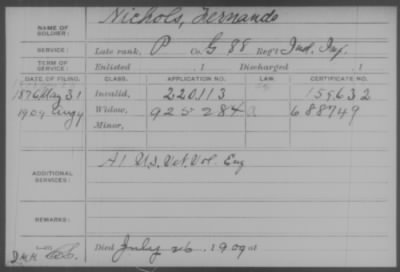 NAME OF SOLDIER: Nichols, Fernando
SERVICE: Late rank, P Co. G 88 Reg't Ind. Inf.
TERM OF SERVICE: Enlisted , 1 Discharged , 1
DATE OF FILING. CLASS. APPLICATION NO. LAW CERTIFICATE NO.
1876 May 31 Invalid, 220113 159,632
1909 Aug 4 Widow, 925284 688749
Minor,
ADDITIONAL SERVICES: A 1 U.S. Vet. Vol. Eng
REMARKS:
Died July 26, 1909 at